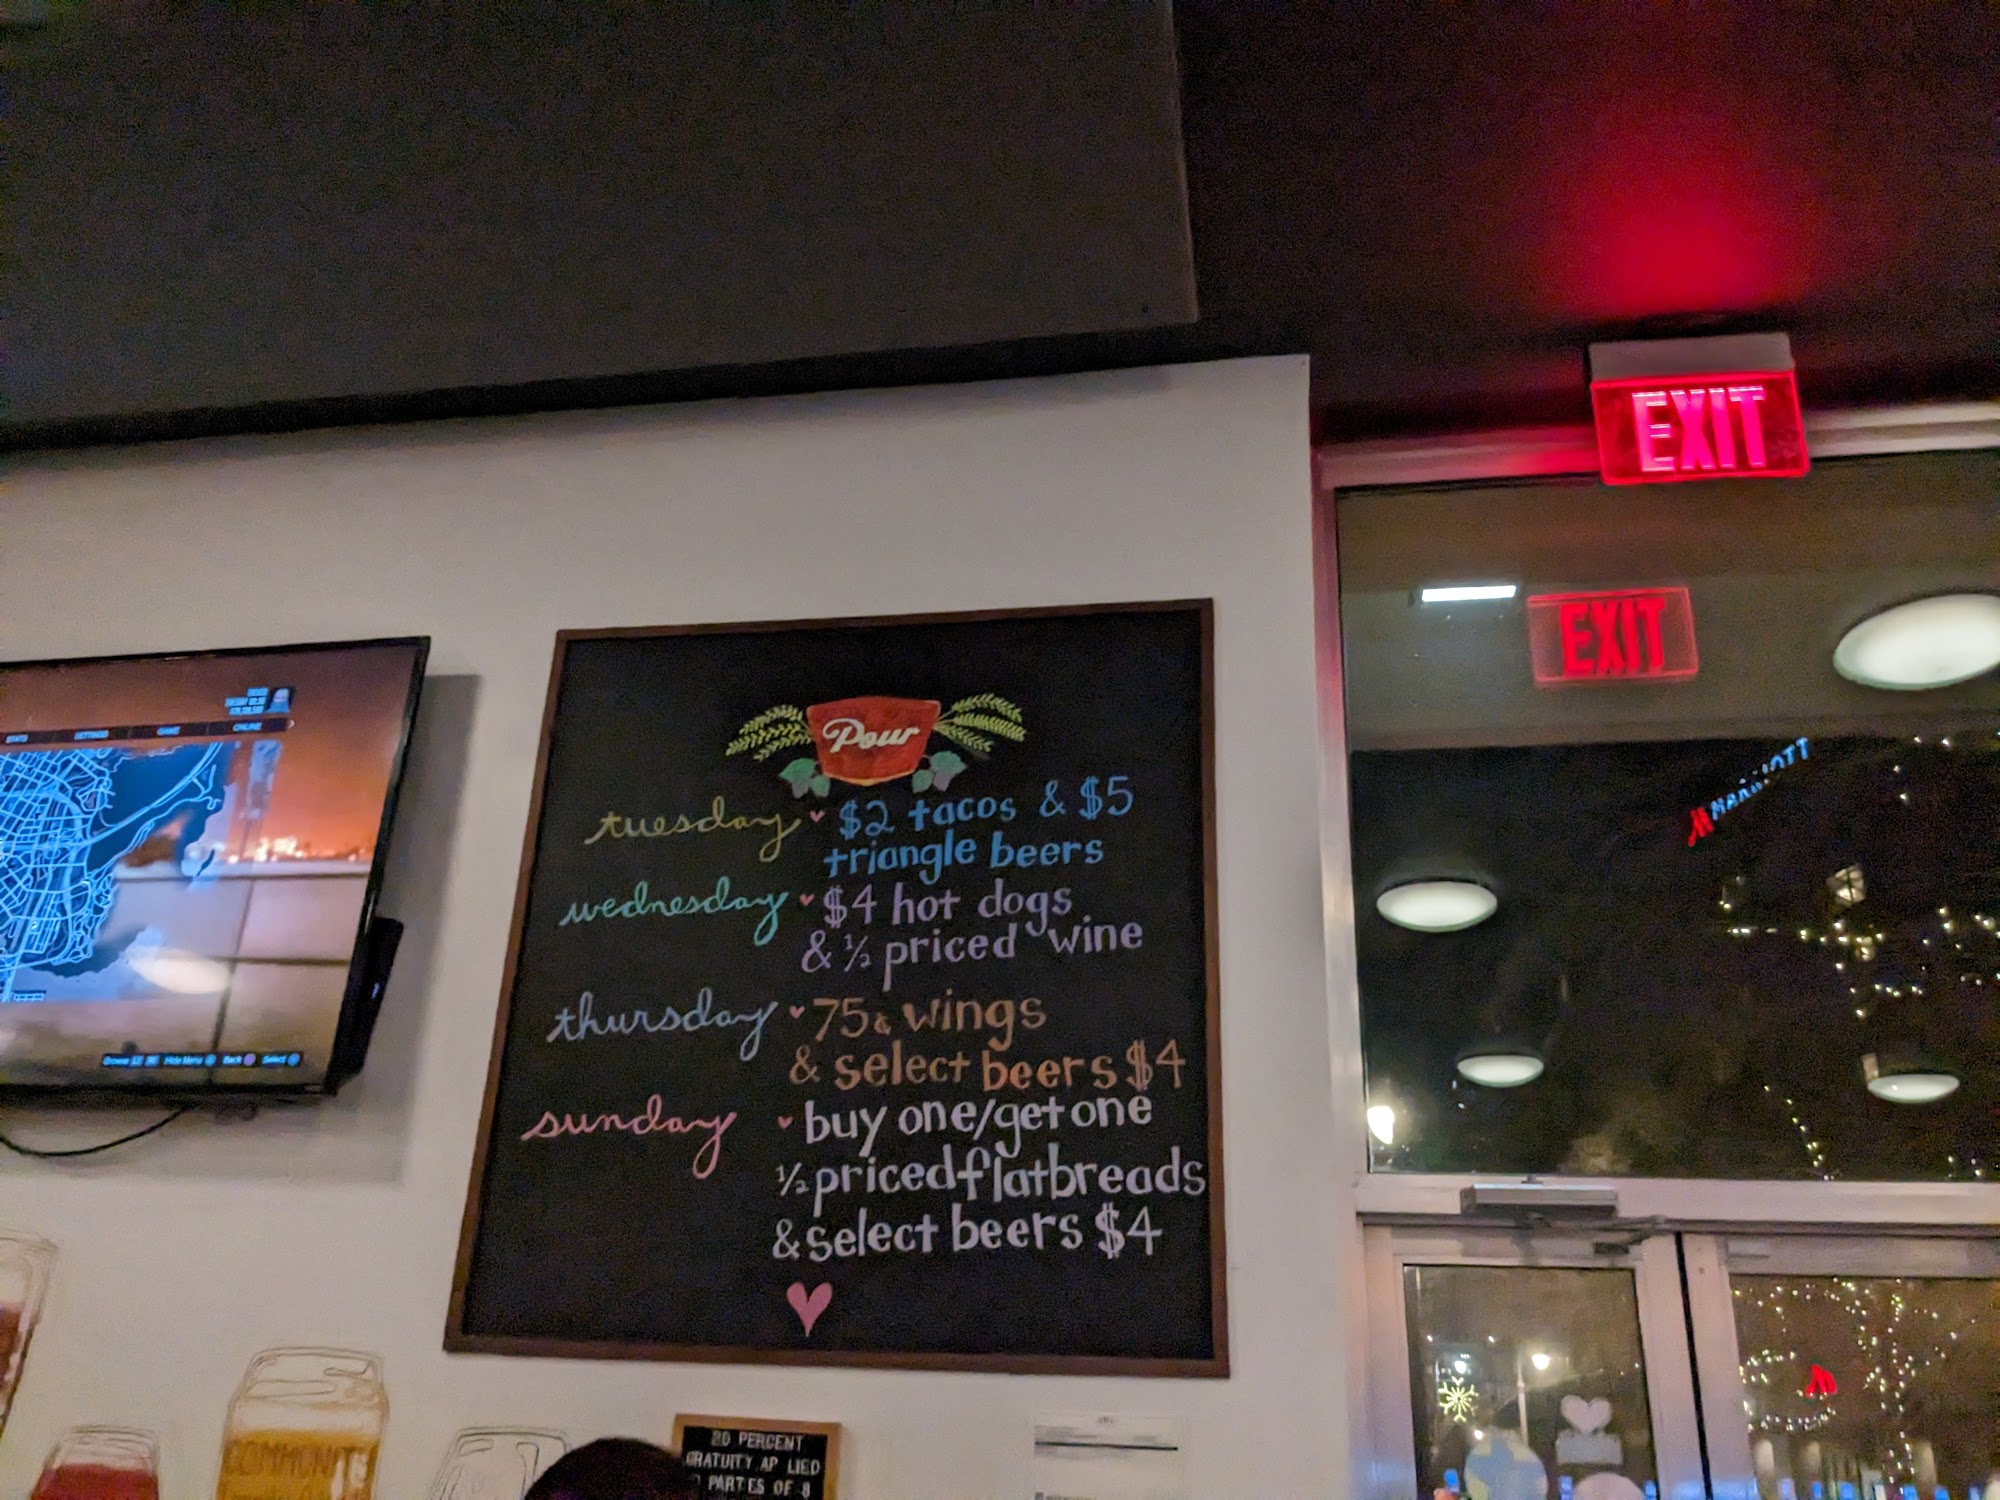 EXIT
EXIT
MARRIOTT
STATS SETTINGS GAME ONLINE
Browse Hide Menu Back Select
Pour
tuesday $2 tacos & $5
triangle beers
wednesday $4 hot dogs
& ½ priced wine
thursday 75¢ wings
& select beers $4
sunday buy one/get one
½ priced flatbreads
& select beers $4
COMMUNITY
20 PERCENT
GRATUITY AP LIED
PARTES OF 8